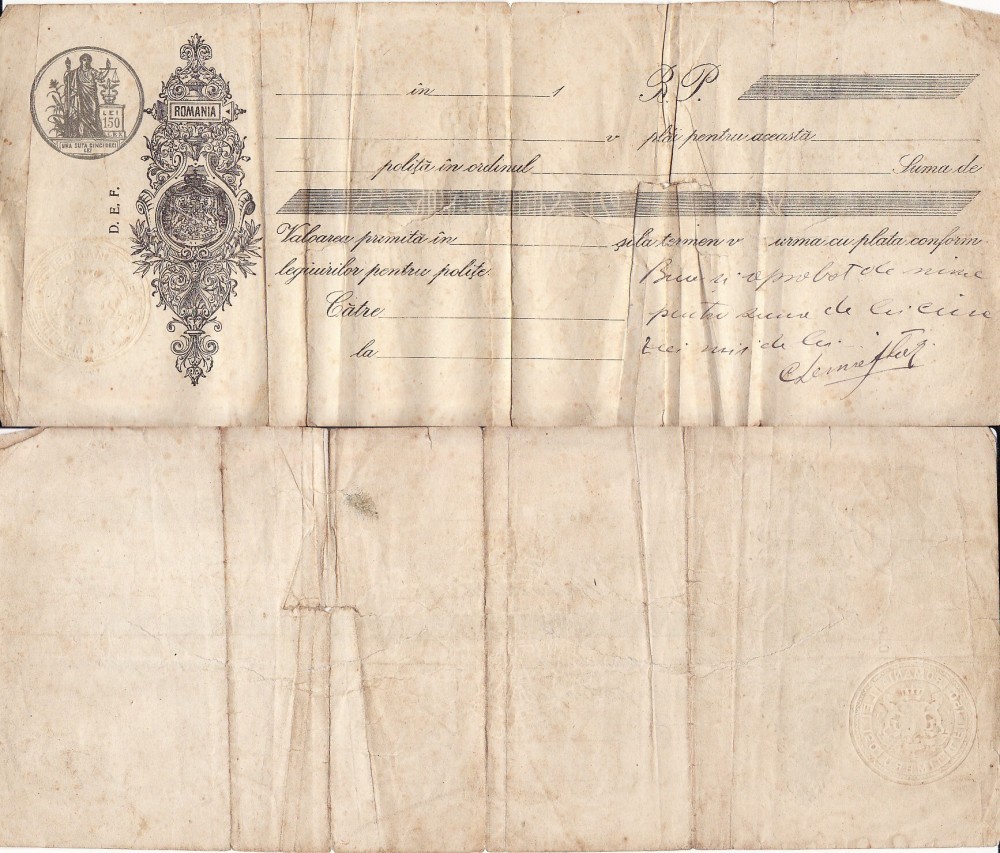 ROMANIA
LEI
150
UNA SUTA CINCIZECI
LEI
D. E. F.
în 1 B. P.
v plăti pentru această
poliță în ordinul Suma de
Valoarea primită în și la termen v urma cu plata conform
legiuirilor pentru polițe
Către
la
Bun și aprobat de mine
pentru suma de lei cinci
zeci mii de lei